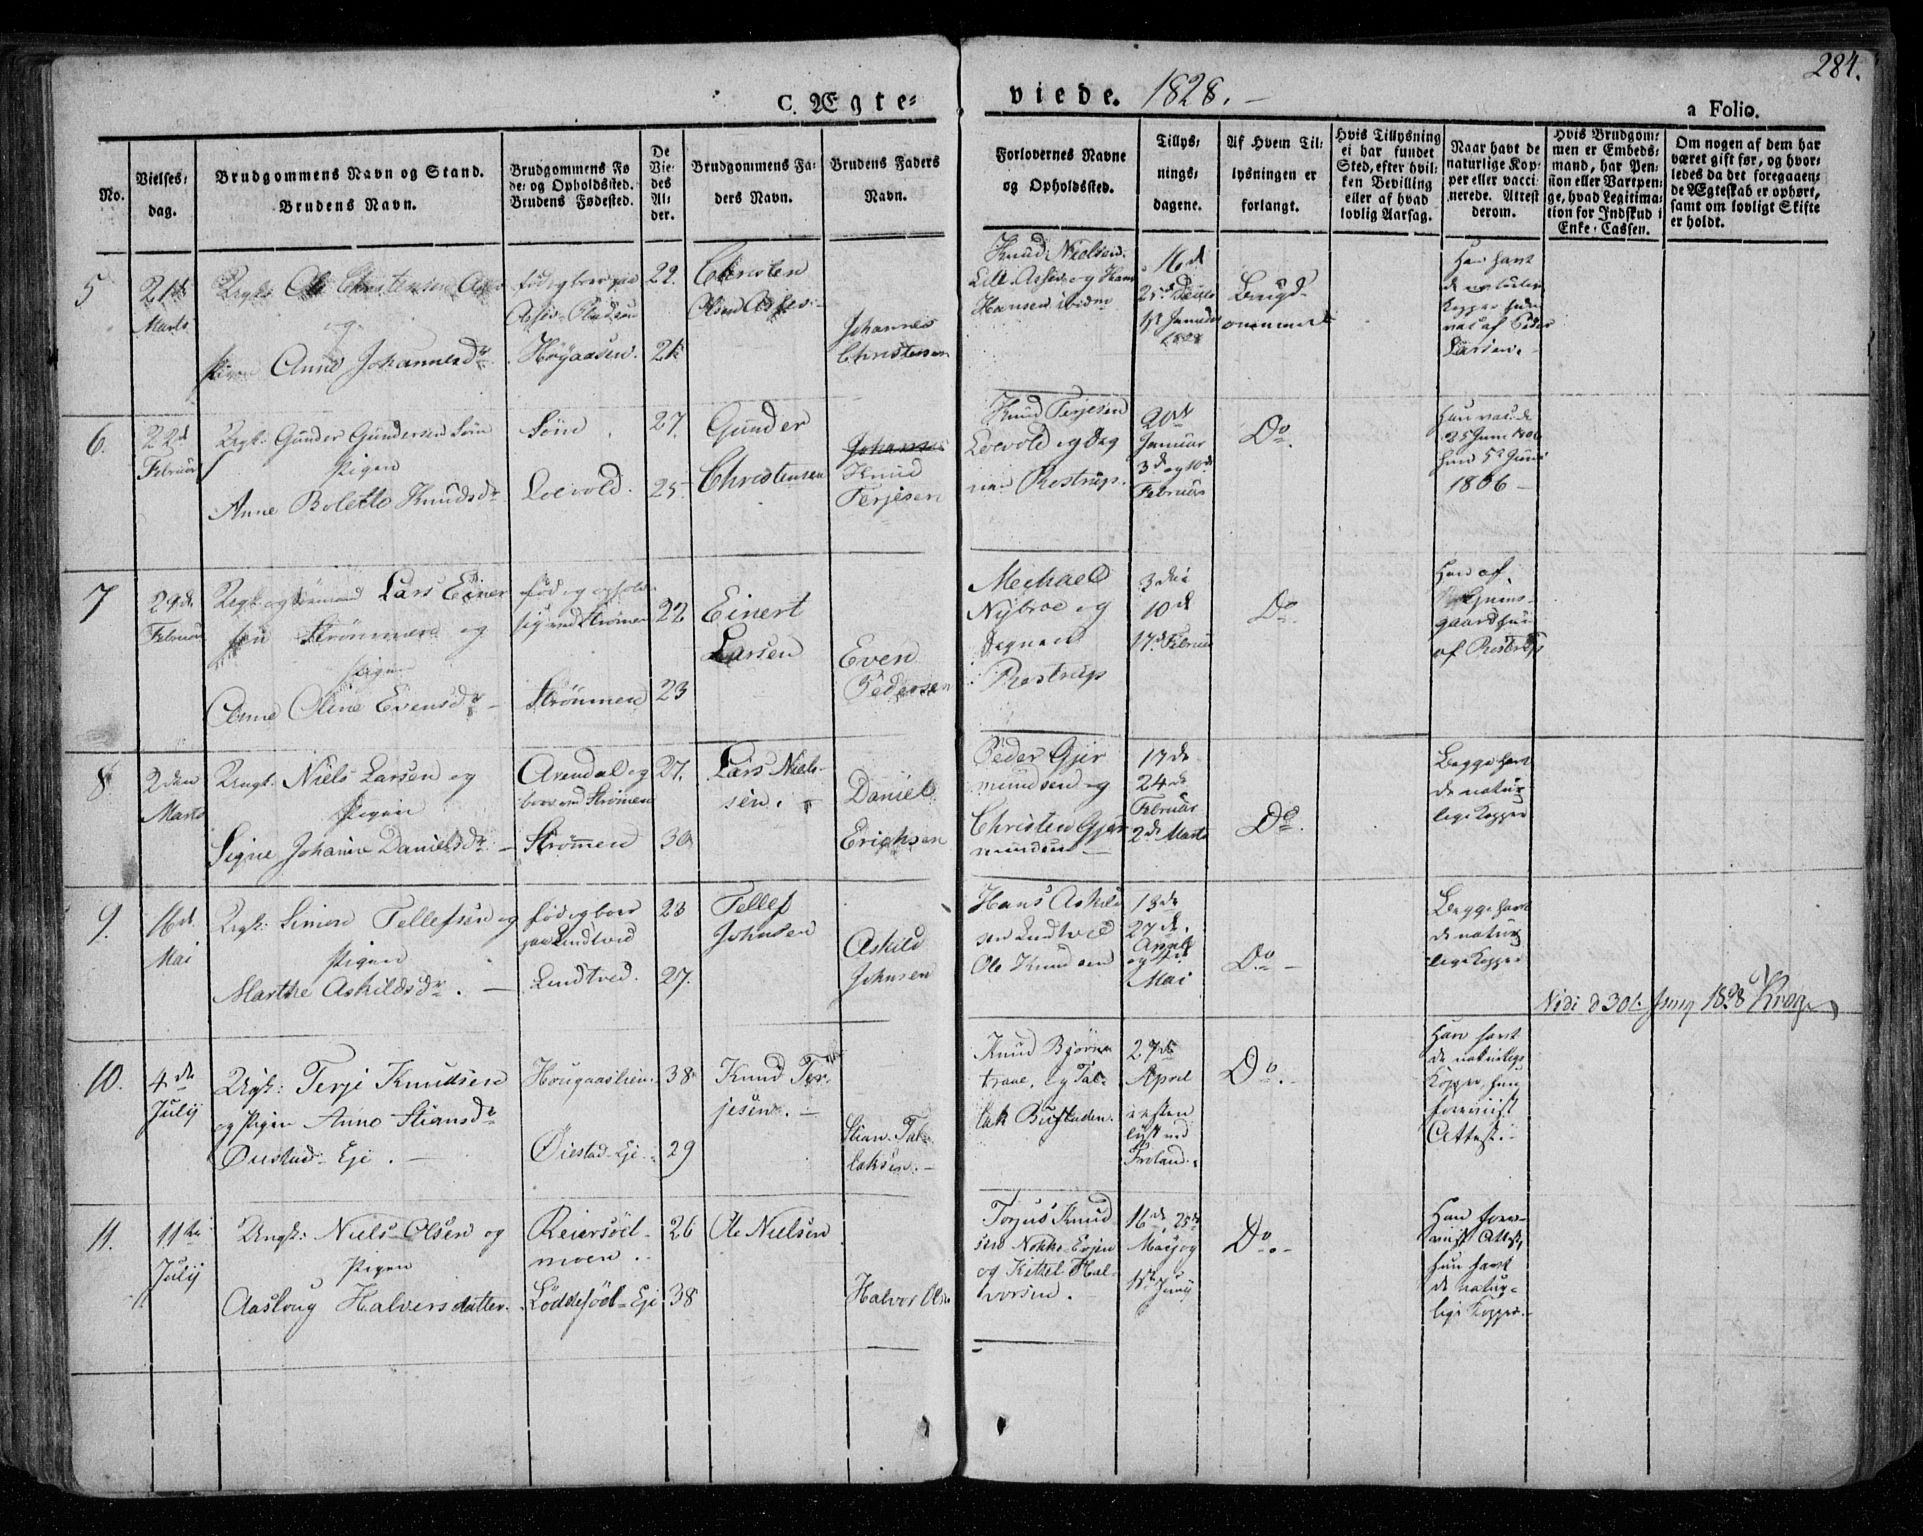 284.
C. Ægte=
viede. 1828. –
a Folio.
No.
Vielses=
dag.
Brudgommens Navn og Stand.
Brudens Navn.
Brudgommens Fø
de= og Opholdssted.
Brudens Fødested.
De
Vie=
des
Al=
der.
Brudgommens Fa=
ders Navn.
Brudens Faders
Navn.
Forlovernes Navne
og Opholdssted.
Tillys=
nings=
dagene.
Af Hvem Til=
lysningen er
forlangt.
Hvis Tillysning
ei har fundet
Sted, efter hvil=
ken Bevilling
eller af hvad
lovlig Aarsag.
Naar havt de
naturlige Kop=
per eller vacci=
nerede. Attest
derom.
Hvis Brudgom=
men er Embeds=
mand, har Pen=
sion eller Vartpen=
ge, hvad Legitima=
tion for Indskud i
Enke-Cassen.
Om nogen af dem har
været gift før, og hvor=
ledes da det foregaaen=
de Ægteskab er ophørt,
samt om lovligt Skifte
er holdt.
5
Marts
Christensen
Pigen Anne Johannesdr
Høyaasen.
22.
Christen
Olsen
Johannes
Christensen
Knud Nielsen
Hansen
16d
Brudg=
ommen
Han havt
de naturlige
Kopper hun
vac af Peder
Larsen.
6.
22d
Februar
Ungk: Gunder Gundersen Søm
Pigen
Anne Bolette Knudsdr
Søm
Loevold.
27.
25
Gunder
Christensen
Johannes
Knud
Terjesen
Knud Terjesen
Loevold og Deg
nen Rostrup.
20de
Januar
3d og 10de
Februar
Do.
Han vac. d.
25 Juni
hun 5te Juni
1806 –
7
29de
Februar
Ungk. og Lars Einer
sen Strømmen og
Pigen
Anne Oline Evensdr –
fød og opholder
sig ved Strømen
Strømmen
22
23
Einert
Larsen
Even
Pedersen
Mechael
Nybroe og
Degnen
Rostrup
3die
10de
17de Februar
Do
Han af
gaard hun
af Rostrup
8
2den
Marts
Ungk: Niels Larsen og
Pigen
Signe Johanne Danielsdr –
Arendal og
boer ved Strømen
Strømmen
27.
30
Lars Niels=
sen.
Daniel
Erichsen
Peder Gjer
mundsen og
Christen Gjer
mundsen –
17de
24de
Februar
2de Marts
Do.
Begge havt
de natur
lige Kopper
9.
16de
Mai
Ungk: Simon Tellefsen og
Pigen
Marthe Askildsdr. –
fød og boer
paa Lundtved
Lundtved.
23
27.
Tellef
Johnsen
Askild
Johnsen
Hans Askild
sen Lundtved
Ole Knudsen
13de
27de
April
og
Mai
Do –
Begge havt
de natur
lige Kopper
d 30t Juny 1828 Krog
10.
4de
July
Ungk: Terje Knudsen
og Pigen Anne Stiansdr
Øiestad Eje. –
Øiestad-Eje
38
29
Knud Ter=
jesen. –
Stian Tal=
laksen. –
Knud Bjørn
traae, og Tal=
lak Bustaden.
27de
April
lyst ved
Froland.
Do. –
Han havt
de naturlige
Kopper, hun
foreviist
Attest. –
11.
11te
July
Ungk: Niels Olsen og
Pigen
Aaslaug Halversdatter.
Reiersöel=
moen.
Løddesöel-Eje
26
38
Ole Nielsen
Halvor Olsen
Torjus Knud
sen
og Kittel Hal=
vorsen. –
16de, 25de
May og
1ste Juny
Do. –
Han fore=
viist Attest,
hun havt
de natur=
lige Kopper. –